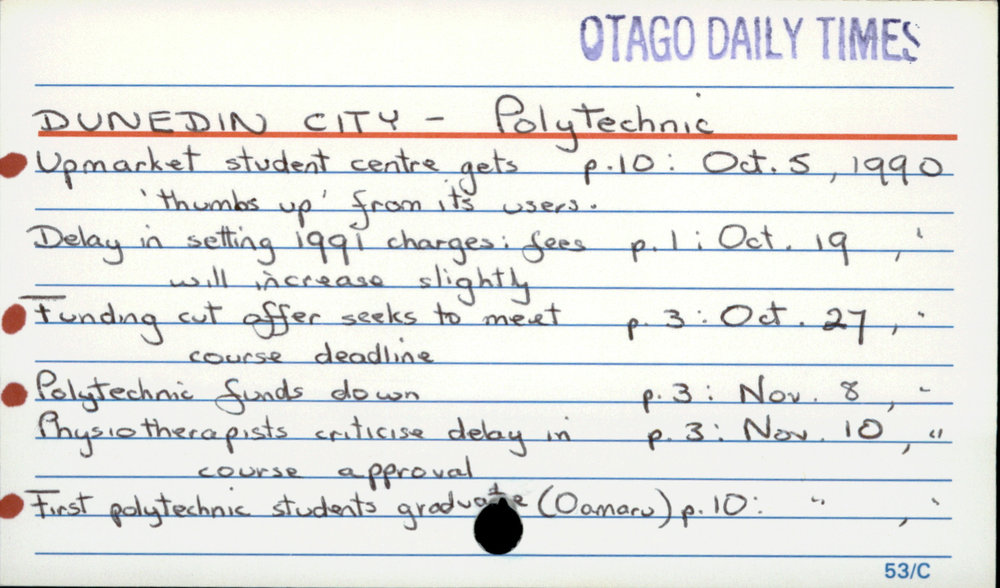 OTAGO DAILY TIMES
DUNEDIN CITY - Polytechnic
Upmarket student centre gets p.10: Oct. 5, 1990
'thumbs up' from its users.
Delay in setting 1991 charges: fees p.1: Oct. 19, "
will increase slightly
Funding cut offer seeks to meet p. 3: Oct. 27, "
course deadline
Polytechnic funds down p. 3: Nov. 8, "
Physiotherapists criticise delay in p. 3: Nov. 10, "
course approval
First polytechnic students graduate (Oamaru) p.10: " , "
53/C